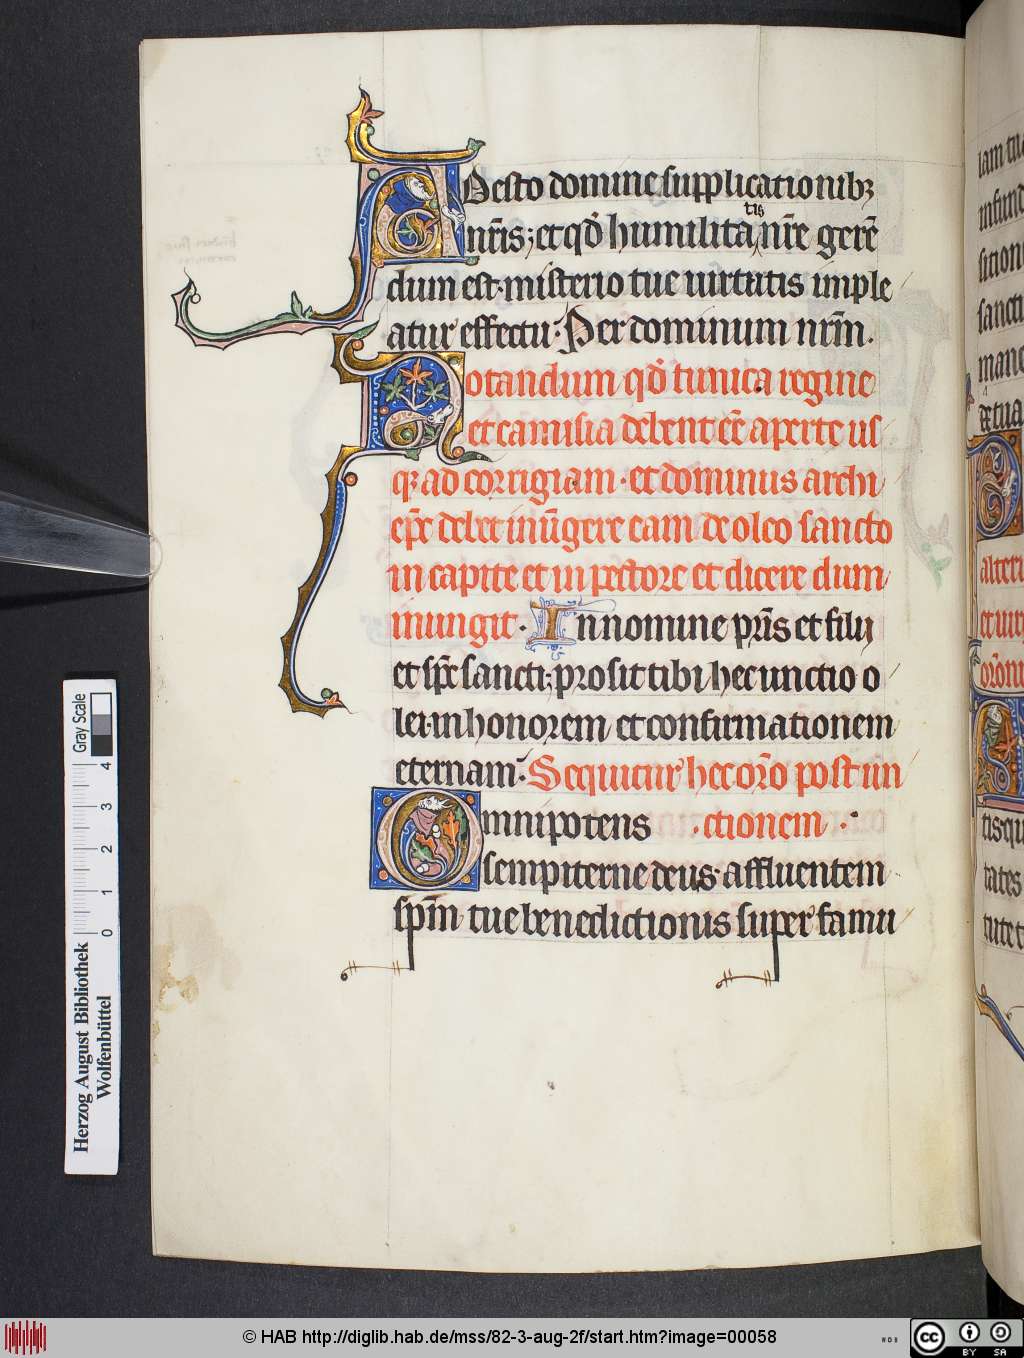 Adesto domine supplicationibꝫ
nr̄is; et qd̄ humilitatis nr̄e gerē
dum est· misterio tue uirtutis imple
atur effectu· Per dominum nr̄m·
Notandum qd̄ tunica regine
et camisia debent eē aperte us
qꝫ ad corrigiam· et dominus archi
ep̄c debet inūgere eam de oleo sancto
in capite et in pectore et dicere dum
inungit· In nomine pr̄is et filij
et sp̄c sancti; prosit tibi hec unctio o
lei· in honorem et confirmationem
eternam· Sequitur hec or̄o post un
Omnipotens ·ctionem·
sempiterne deus· affluentem
sp̄m tue benedictionis super famu
Gray Scale
0 1 2 3 4
Herzog August Bibliothek
Wolfenbüttel
© HAB http://diglib.hab.de/mss/82-3-aug-2f/start.htm?image=00058
WDB
cc BY SA